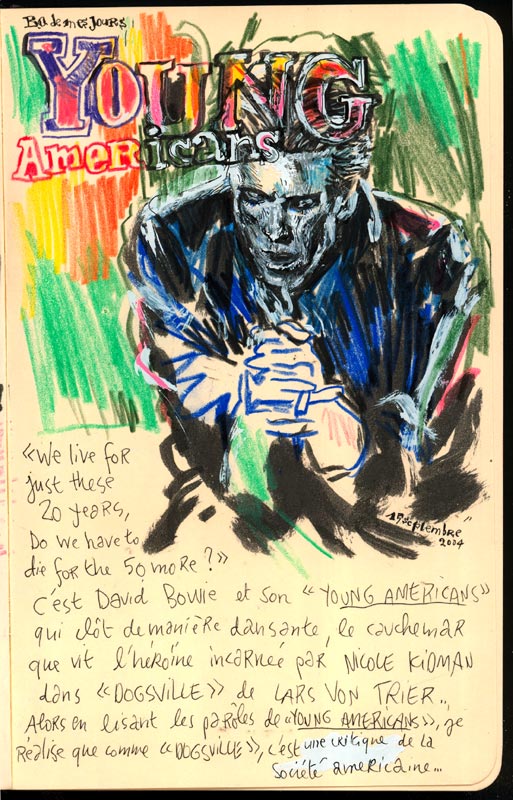 BO de mes jours
YOUNG
Americans
"
17 septembre
2004
«We live for
just these
20 years,
Do we have to
die for the 50 more ?»
c'est David Bowie et son « YOUNG AMERICANS»
qui clôt de manière dansante, le cauchemar
que vit l'héroïne incarnée par NICOLE KIDMAN
dans «DOGSVILLE» de LARS VON TRIER..
Alors en lisant les paroles de «YOUNG AMERICANS», je
réalise que comme «DOGSVILLE», c'est une critique de la
société américaine...